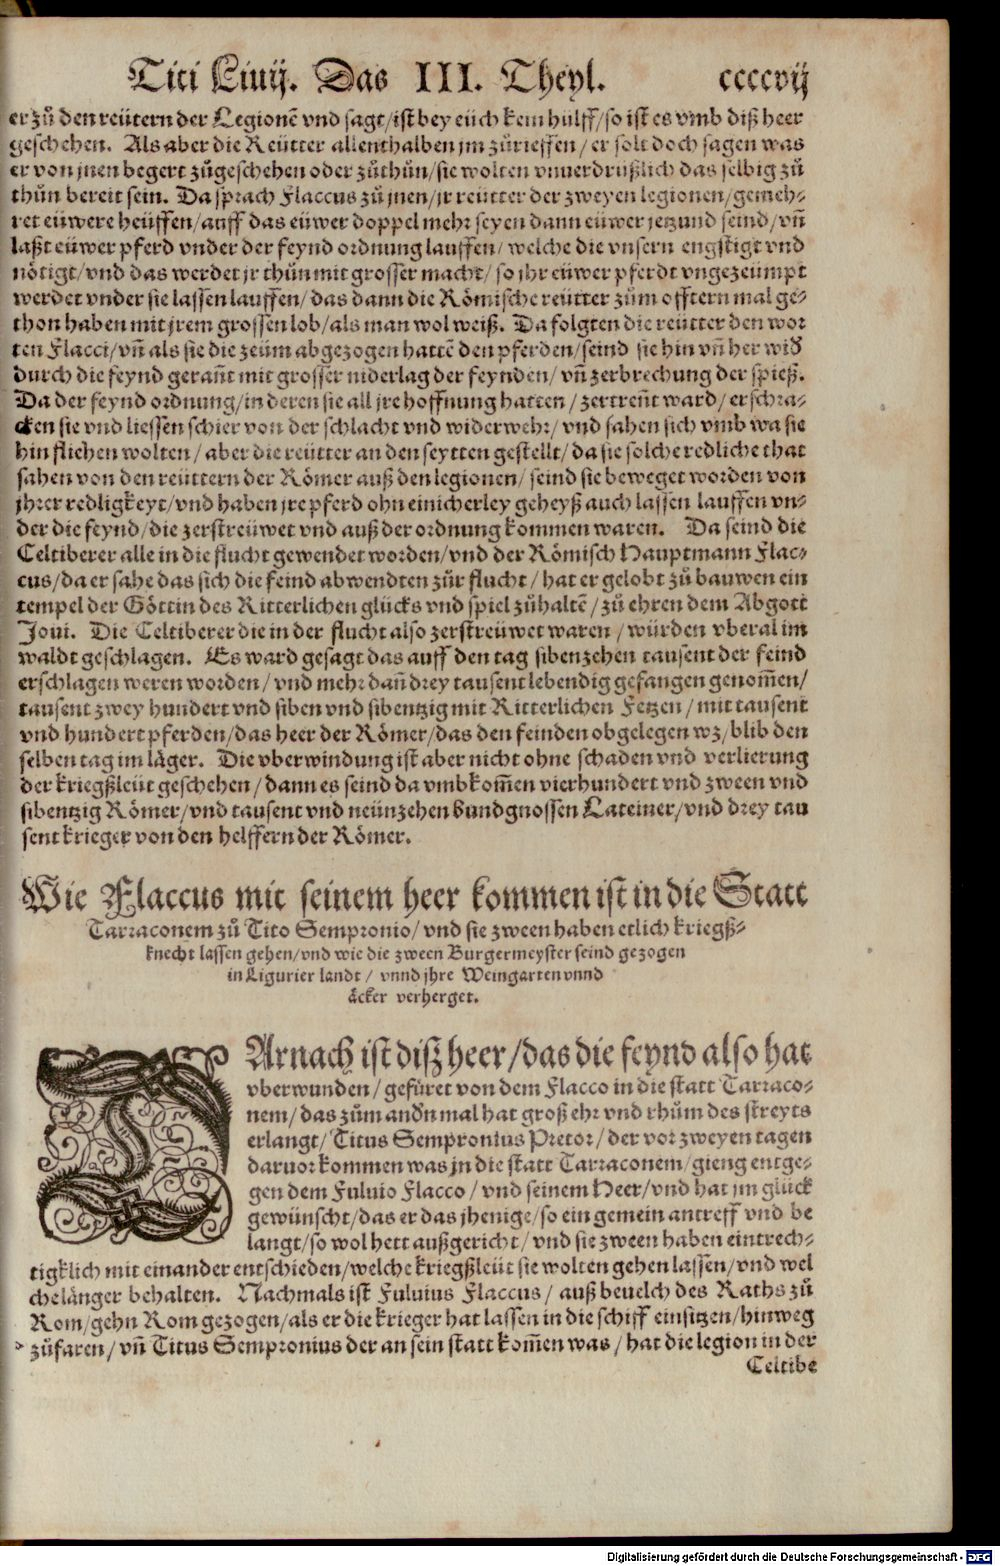 Titi Liuij. Das III. Theyl. ccccvij
er zů den reütern der Legionē vnd sagt/ist bey eüch kein hülff/so ist es vmb diß heer
geschehen. Als aber die Reütter allenthalben jm zůrieffen/er solt doch sagen was
er von jnen begert zůgeschehen oder zůthůn/sie wolten vnuerdrüßlich das selbig zů
thůn bereit sein. Da sprach Flaccus zů jnen/jr reütter der zweyen legionen/gemeh-
ret eüwere heüffen/auff das eüwer doppel mehr seyen dann eüwer jetzund seind/vñ
laßt eüwer pferd vnder der feynd ordnung lauffen/welche die vnsern engstigt vnd
nötigt/vnd das werdet jr thůn mit grosser macht/so jhr eüwer pferdt vngezeümpt
werdet vnder sie lassen lauffen/das dann die Römische reütter zům offtern mal ge-
thon haben mit jrem grossen lob/als man wol weiß. Da folgten die reütter den wor
ten Flacci/vñ als sie die zeüm abgezogen hattē den pferden/seind sie hin vñ her wiď
durch die feynd gerañt mit grosser niderlag der feynden/vñ zerbrechung der spieß.
Da der feynd ordnung/in deren sie all jre hoffnung hatten/zertreñt ward/erschra-
cken sie vnd liessen schier von der schlacht vnd widerwehr/vnd sahen sich vmb wa sie
hin fliehen wolten/aber die reütter an den seytten gestellt/da sie solche redliche that
sahen von den reüttern der Römer auß den legionen/seind sie beweget worden von
jhrer redligkeyt/vnd haben jre pferd ohn einicherley geheyß auch lassen lauffen vn-
der die feynd/die zerstreüwet vnd auß der ordnung kommen waren. Da seind die
Celtiberer alle in die flucht gewendet worden/vnd der Römisch Hauptmann Flac-
cus/da er sahe das sich die feind abwendten zůr flucht/hat er gelobt zů bauwen ein
tempel der Göttin des Ritterlichen glücks vnd spiel zůhaltē/zů ehren dem Abgott
Joui. Die Celtiberer die in der flucht also zerstreüwet waren/würden vberal im
waldt geschlagen. Es ward gesagt das auff den tag sibenzehen tausent der feind
erschlagen weren worden/vnd mehr dañ drey tausent lebendig gefangen genom̃en/
tausent zwey hundert vnd siben vnd sibentzig mit Ritterlichen Fetzen/mit tausent
vnd hundert pferden/das heer der Römer/das den feinden obgelegen wz/blib den
selben tag im läger. Die vberwindung ist aber nicht ohne schaden vnd verlierung
der kriegßleüt geschehen/dann es seind da vmbkom̃en vierhundert vnd zween vnd
sibentzig Römer/vnd tausent vnd neünzehen bundgnossen Lateiner/vnd drey tau
sent krieger von den helffern der Römer.
Wie Flaccus mit seinem heer kommen ist in die Statt
Tarraconem zů Tito Sempronio/vnd sie zween haben etlich kriegß-
knecht lassen gehen/vnd wie die zween Burgermeyster seind gezogen
in Ligurier landt/vnnd jhre Weingarten vnnd
äcker verherget.
DArnach ist diß heer/das die feynd also hat
vberwunden/gefüret von dem Flacco in die statt Tarraco-
nem/das zům anďn mal hat groß ehr vnd rhům des streyts
erlangt/Titus Sempronius Pretor/der vor zweyen tagen
daruor kommen was jn die statt Tarraconem/gieng entge-
gen dem Fuluio Flacco/vnd seinem Heer/vnd hat jm glück
gewünscht/das er das jhenige/so ein gemein antreff vnd be
langt/so wol hett außgericht/vnd sie zween haben eintrech-
tigklich mit einander entschieden/welche kriegßleüt sie wolten gehen lassen/vnd wel
che länger behalten. Nachmals ist Fuluius Flaccus/auß beuelch des Raths zů
Rom/gehn Rom gezogen/als er die krieger hat lassen in die schiff einsitzen/hinweg
zůfaren/vñ Titus Sempronius der an sein statt kom̃en was/hat die legion in der
Celtibe
Digitalisierung gefördert durch die Deutsche Forschungsgemeinschaft - DFG